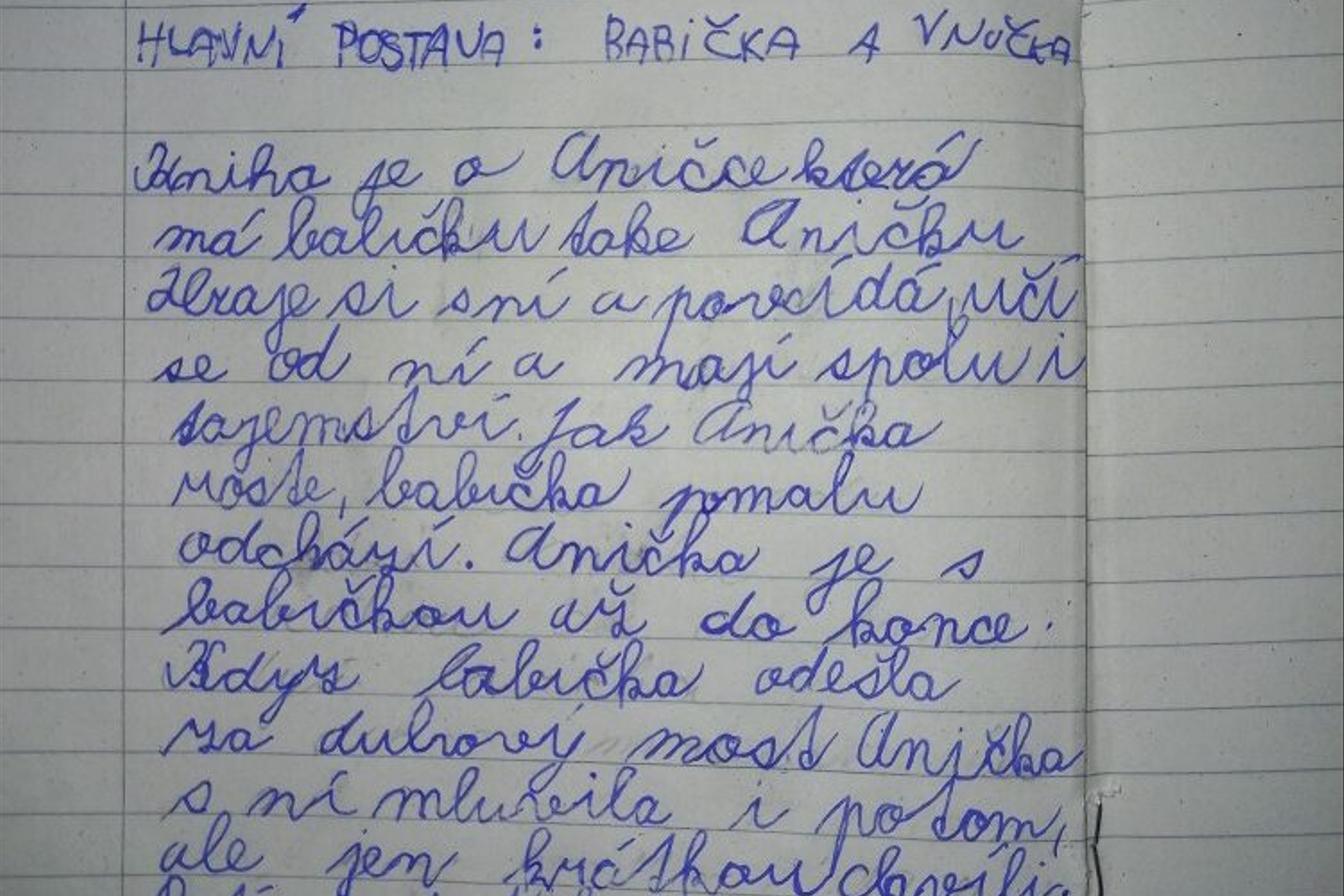 HLAVNÍ POSTAVA: BABIČKA A VNUČKA
Kniha je o Aničce která
má babičku take Aničku
Hraje si sní a povídá, učí
se od ní a mají spolu i
tajemství. Jak Anička
roste, babička pomalu
odchází. Anička je s
babičkou až do konce.
Když babička odešla
za duhový most Anička
s ní mluvila i potom,
ale jen krátkou